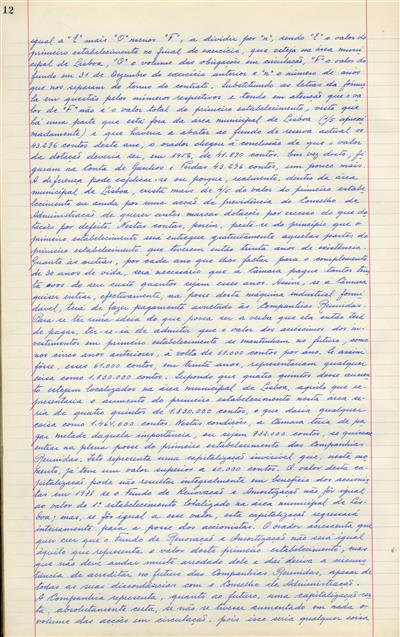 12
egual a "E" mais "O" menos "F", a dividir por "n", sendo "E" o valor do
primeiro estabelecimento no final do exercício, que esteja na área muni-
cipal de Lisboa, "O" o volume das obrigações em circulação, "F" o valor do
fundo em 31 de Dezembro do exercício anterior e "n" o número de anos
que nos separam do termo do contrato. Substituindo as letras da fórmu-
la em questão pelos números respectivos e tendo em atenção que o va-
lor de "E" não é o valor total do primeiro estabelecimento, visto que
há uma parte que está fora da área municipal de Lisboa (1/5 aproxi-
madamente) e que haveria a abater ao fundo de reserva actual os
43.296 contos deste ano, o orador chegou à conclusão de que o valor
da dotação deveria ser, em 1956, de 41.890 contos. Em vez disto, fi-
guram na Conta de Ganhos e Perdas 43.296 contos, um pouco mais.
A diferença pode explicar-se ou porque, realmente, dentro da área
municipal de Lisboa, exista mais de 4/5 do valor do primeiro estabe-
lecimento ou ainda por uma acção de previdência do Conselho de
Administração de querer antes marcar dotações por excesso do que do-
tações por defeito. Nestas contas, porém, parte-se do princípio que o
primeiro estabelecimento será entregue gratuitamente aquelas partes do
primeiro estabelecimento que tenham então trinta anos de existência.
Quanto às outras, por cada ano que lhes faltar para o complemento
de 30 anos de vida, será necessário que a Câmara pague tantos trin-
ta avos do seu custo quantos sejam esses anos. Assim, se a Câmara
quiser entrar, efectivamente, na posse desta máquina industrial formi-
dável, terá de fazer pagamento avultado às Companhias Reunidas.
Para se ter uma ideia do que possa ser a verba que ela então terá
de pagar, ter-se-ia de admitir que o valor dos acréscimos dos in-
vestimentos em primeiro estabelecimento se mantinham no futuro, como
nos cinco anos anteriores, à volta de 61.000 contos por ano. Se assim
fôsse, esses 61.000 contos, em trinta anos, representariam qualquer
coisa como 1.830.000 contos. Supondo que quatro quintos dêsse aumen-
to estejam localizados na área municipal de Lisboa, aquilo que re-
presentaria o aumento do primeiro estabelecimento nesta área se-
ria de quatro quintos de 1.830.000 contos, o que daria qualquer
coisa como 1.464.000 contos. Nestas condições, a Câmara teria de pa-
gar metade daquela importância, ou sejam 732.000 contos, se quisesse
entrar na plena posse do primeiro estabelecimento das Companhias
Reunidas. Isto representa uma capitalização invisível que, neste mo-
mento, já tem um valor superior a 60.000 contos. O valor desta ca-
pitalização pode não resultar integralmente em benefício dos accionis-
tas em 1978 se o Fundo de Renovação e Amortização não fôr igual
ao valor do 1º estabelecimento totalizado na área municipal de Lis-
boa; mas, se fôr igual a esse valor, esta capitalização regressará
inteiramente para a posse dos accionistas. O orador acrescenta que
quer crer que o Fundo de Renovação e Amortização não será igual
àquilo que representa o valor deste primeiro estabelecimento, mas
que não deve andar muito arredado dele e daí deriva a circuns-
tância de acreditar no futuro das Companhias Reunidas, apesar de
todas as suas discordâncias com o Conselho de Administração.
A Companhia representa, quanto ao futuro, uma capitalização cer-
ta, absolutamente certa, se não se tivesse aumentado em nada o
volume das acções em circulação, pois isso seria qualquer coisa